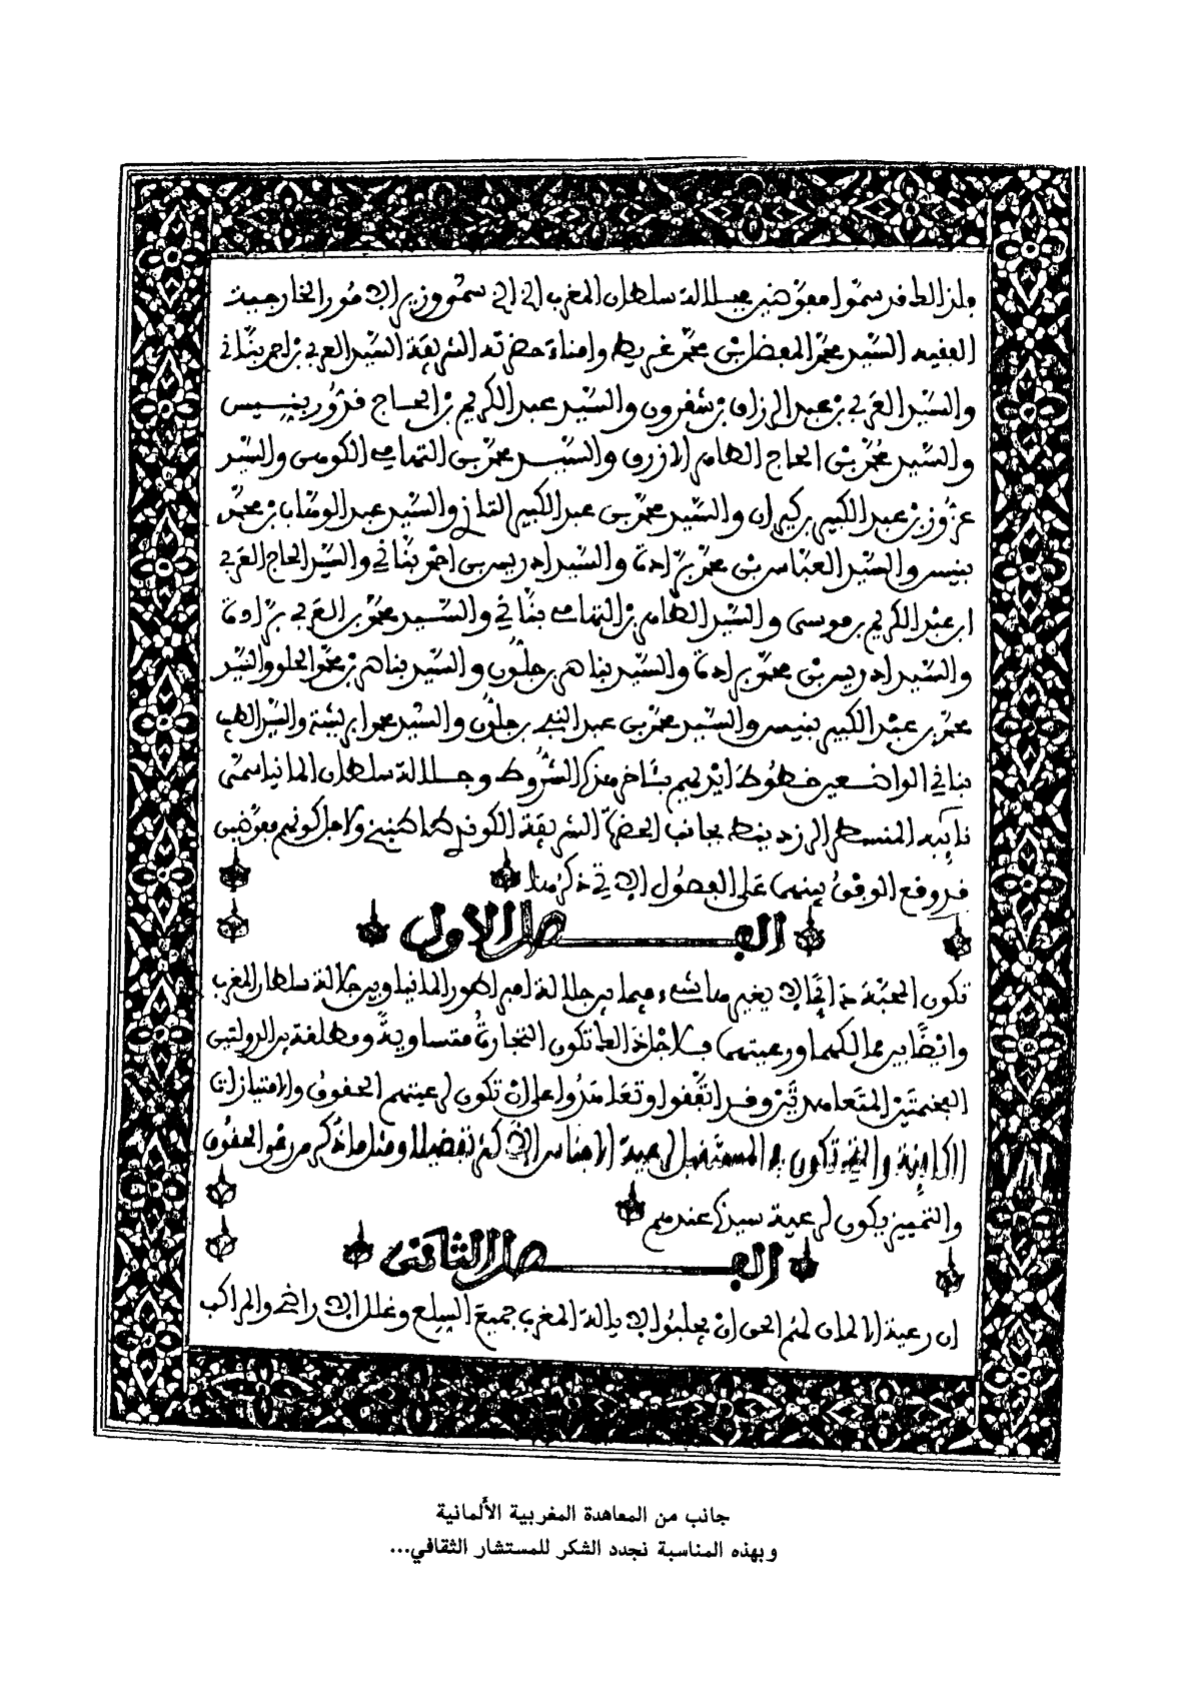 سلطان المغرب الى سمو وزير الامور الخارجية
الفقيه السيد محمد المفضل بن محمد غريط وامناء حضرته الشريفة السيد العربي بن احمد بناني
والسيد العربي بن عبد الرزاق بن شقرون والسيد عبد الكريم بن الحاج بنيس
والسيد محمد بن الحاج الطاهر الازرق والسيد محمد بن التهامي الكوسي والسيد
عزوز بن عبد الكبير بركيران والسيد محمد بن عبد الكبير التازي والسيد عبد الوهاب بن محمد
بنيس والسيد العباس بن محمد برادة والسيد ادريس بن احمد بناني والسيد الحاج العربي
ابن عبد الكريم بن موسى والسيد الطاهر بن التهامي بناني والسيد محمد بن العربي برادة
والسيد ادريس بن محمد برادة والسيد بناصر بن جلون والسيد بناصر بن محمد الحلو والسيد
محمد بن عبد الكبير بنيس والسيد محمد بن عبد النبي بن جلون والسيد محمد ابريشة والسيد
بناني الواضعين خطوط ايديهم هذه الشروط وجلالة سلطان المانيا سمى
نائبه بجانب الحضرة الشريفة الكونط ولاجل كونهم مفوضين
قد وقع الوفق بينهما على الفصول الاتي ذكرها
الفصل الاول
تكون المحبة دائما لا يغيرها شيء فيما بين جلالة امبراطور المانيا وبين جلالة سلطان المغرب
وايضا بين ممالكهما ورعيتهما فلاجل ذلك تكون التجارة متساوية ومطلقة بين الدولتين
المتعاهدتين وقد اتفقوا وتعاهدوا على ان تكون لرعيتهم الحقوق والامتيازات
الكائنة والتي تكون في المستقبل لرعية الاجناس الاكثر تفضيلا ومثل ما ذكر من الحقوق
والتمييز يكون لرعية سيدنا عندهم
الفصل الثاني
ان رعية الالمان لهم الحق ان يجلبوا لايالة المغرب جميع السلع وغلل الاراضي والمراكب
جانب من المعاهدة المغربية الألمانية
وبهذه المناسبة نجدد الشكر للمستشار الثقافي...